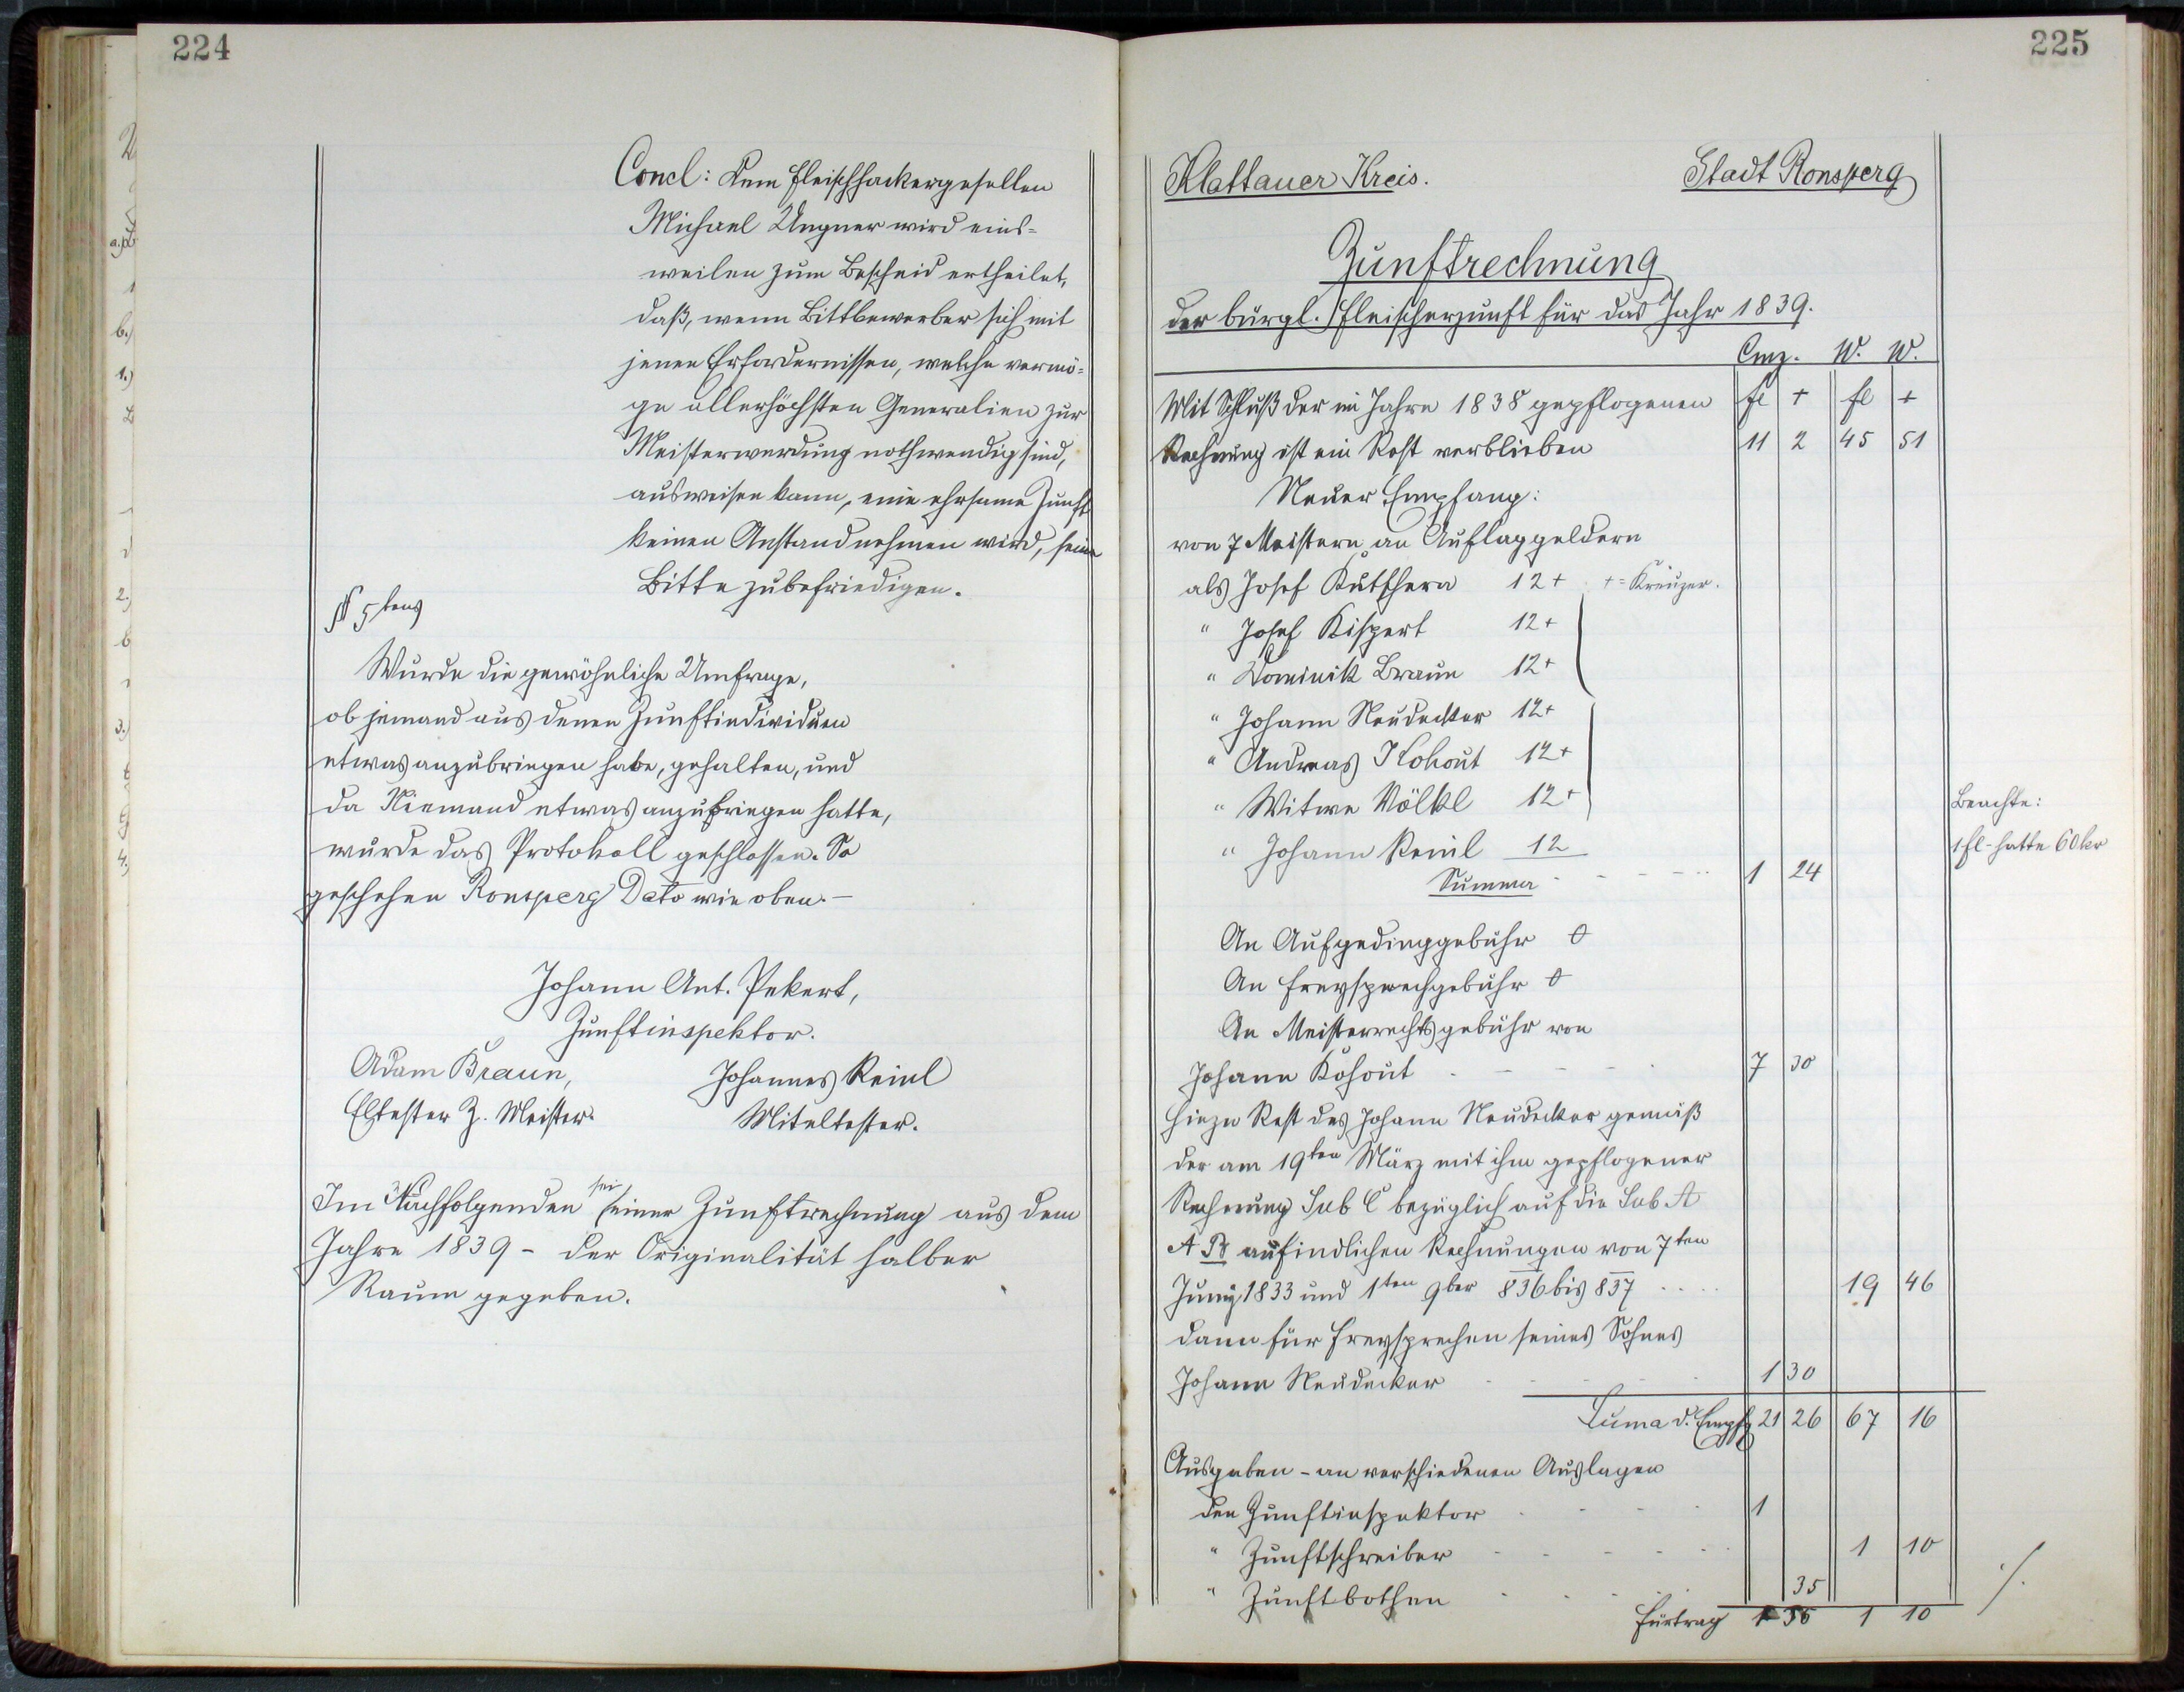 224
Concl: Dem Fleischhackergesellen
Michael Ungner wird eins-
weilen zum Bescheid ertheilet,
daß, wenn Bittbewerber sich mit
jenen Erfordernissen, welche vermö-
ge allerhöchsten Generalien zur
Meisterwerdung nothwendig sind,
ausweisen kann, eine ehrsame Zunft
keinen Anstand nehmen wird, seine
Bitte zu befriedigen.
§ 5tens
Wurde die gewöhnliche Umfrage,
ob jemand aus denen Zunftindividuen
etwas anzubringen habe, gehalten, und
da Niemand etwas anzubringen hatte,
wurde das Protokoll geschlossen. So
geschehen Ronsperg Dato wie oben. –
Johann Ant. Pekert,
Zunftinspektor.
Adam Braun, Johannes Reinl
Eltester Z. Meister. Miteltester.
Im Nachfolgenden sei einer Zunftrechnung aus dem
Jahre 1839 – der Originalität halber
Raum gegeben.
225
Klattauer Kreis. Stadt Ronsperg
Zunftrechnung
der bürgl. Fleischerzunft für das Jahr 1839.
Cmz. W. W.
Mit Schluß der im Jahre 1838 gepflogenen fl + fl +
Rechnung ist ein Rest verblieben 11 2 45 51
Neuer Empfang:
von 7 Meistern an Auflaggeldern
als Josef Kutschera 12+ += Kreuzer.
" Josef Kispert 12+
" Dominik Braun 12+
" Johann Neudecker 12+
" Andreas Kohout 12+
" Witwe Völkl 12+
Beachte:
" Johann Reinl 12
1 fl - hatte 60 kr
Summa 1 24
An Aufgedinggebühr 0
An Freysprechgebühr 0
An Meisterrechtsgebühr von
Johann Kohout 7 30
Hiezu Rest des Johann Neudecker gemäß
der am 19ten März mit ihm gepflogener
Rechnung Sub C bezüglich auf die Sub A
A B aufindlichen Rechnungen von 7ten
Juny 1833 und 1ten 9ber 836 bis 837 19 46
dann für Freysprechen seines Sohnes
Johann Neudecker 1 30
Suma d. Empfg 21 26 67 16
Ausgaben - an verschiedenen Auslagen
den Zunftinspektor 1
" Zunftschreiber 1 10
" Zunftbothen 35
Fürtrag 1 35 1 10
./.